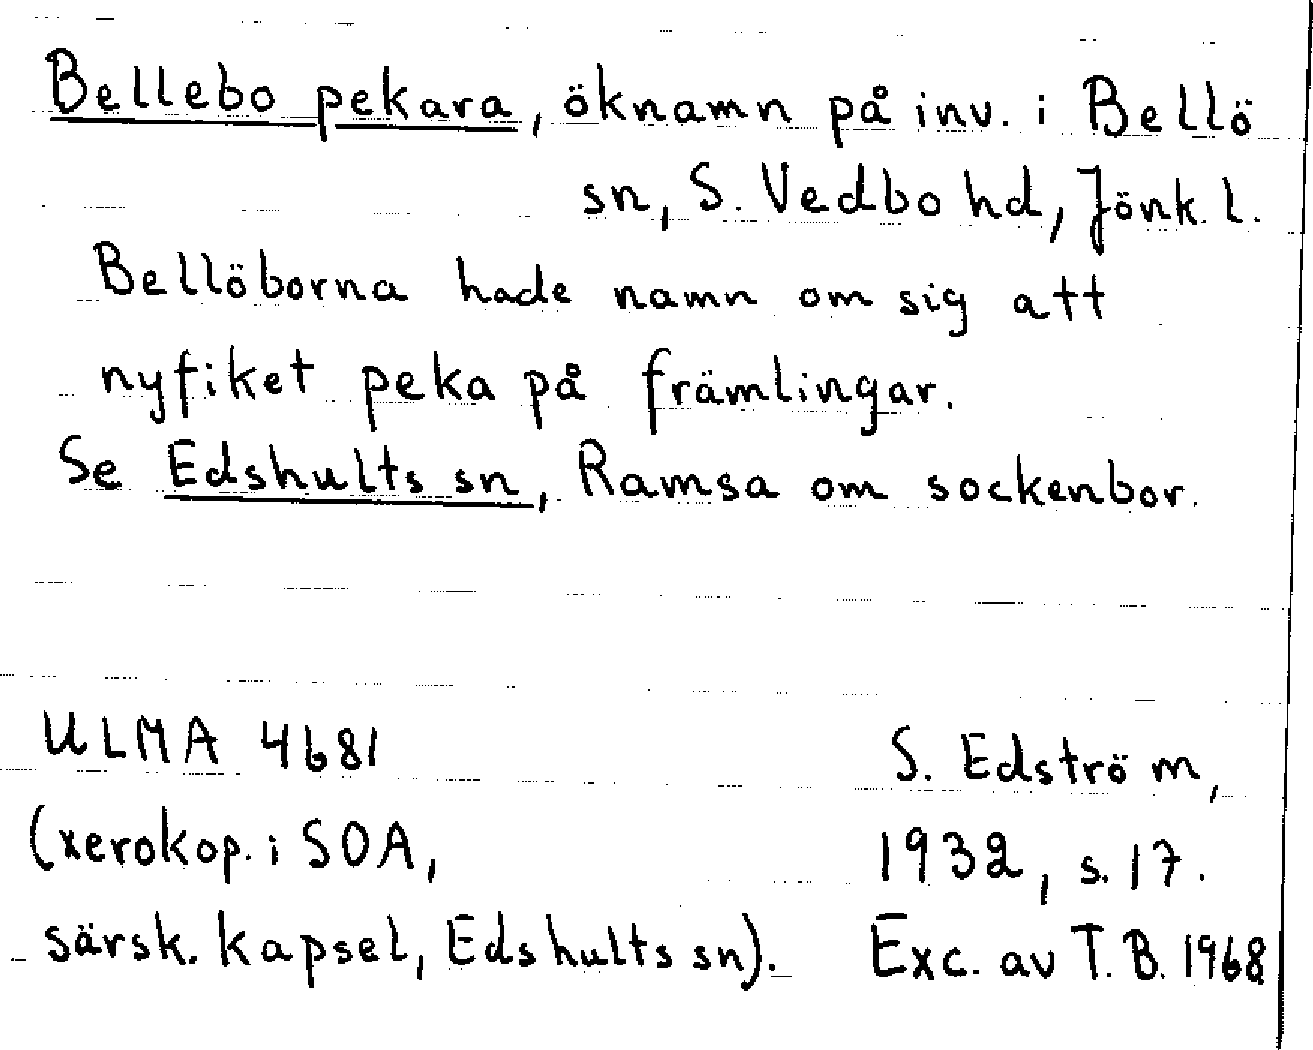 Bellebo pekara, öknamn på inv. i Bellö
sn, S. Vedbo hd, Jönk. l.
Bellöborna hade namn om sig att
nyfiket peka på främlingar.
Se Edshults sn, Ramsa om sockenbor.
ULMA 4681
(xerokop. i SOA,
särsk. kapsel, Edshults sn).
S. Edström,
1932, s. 17.
Exc. av T. B. 1968